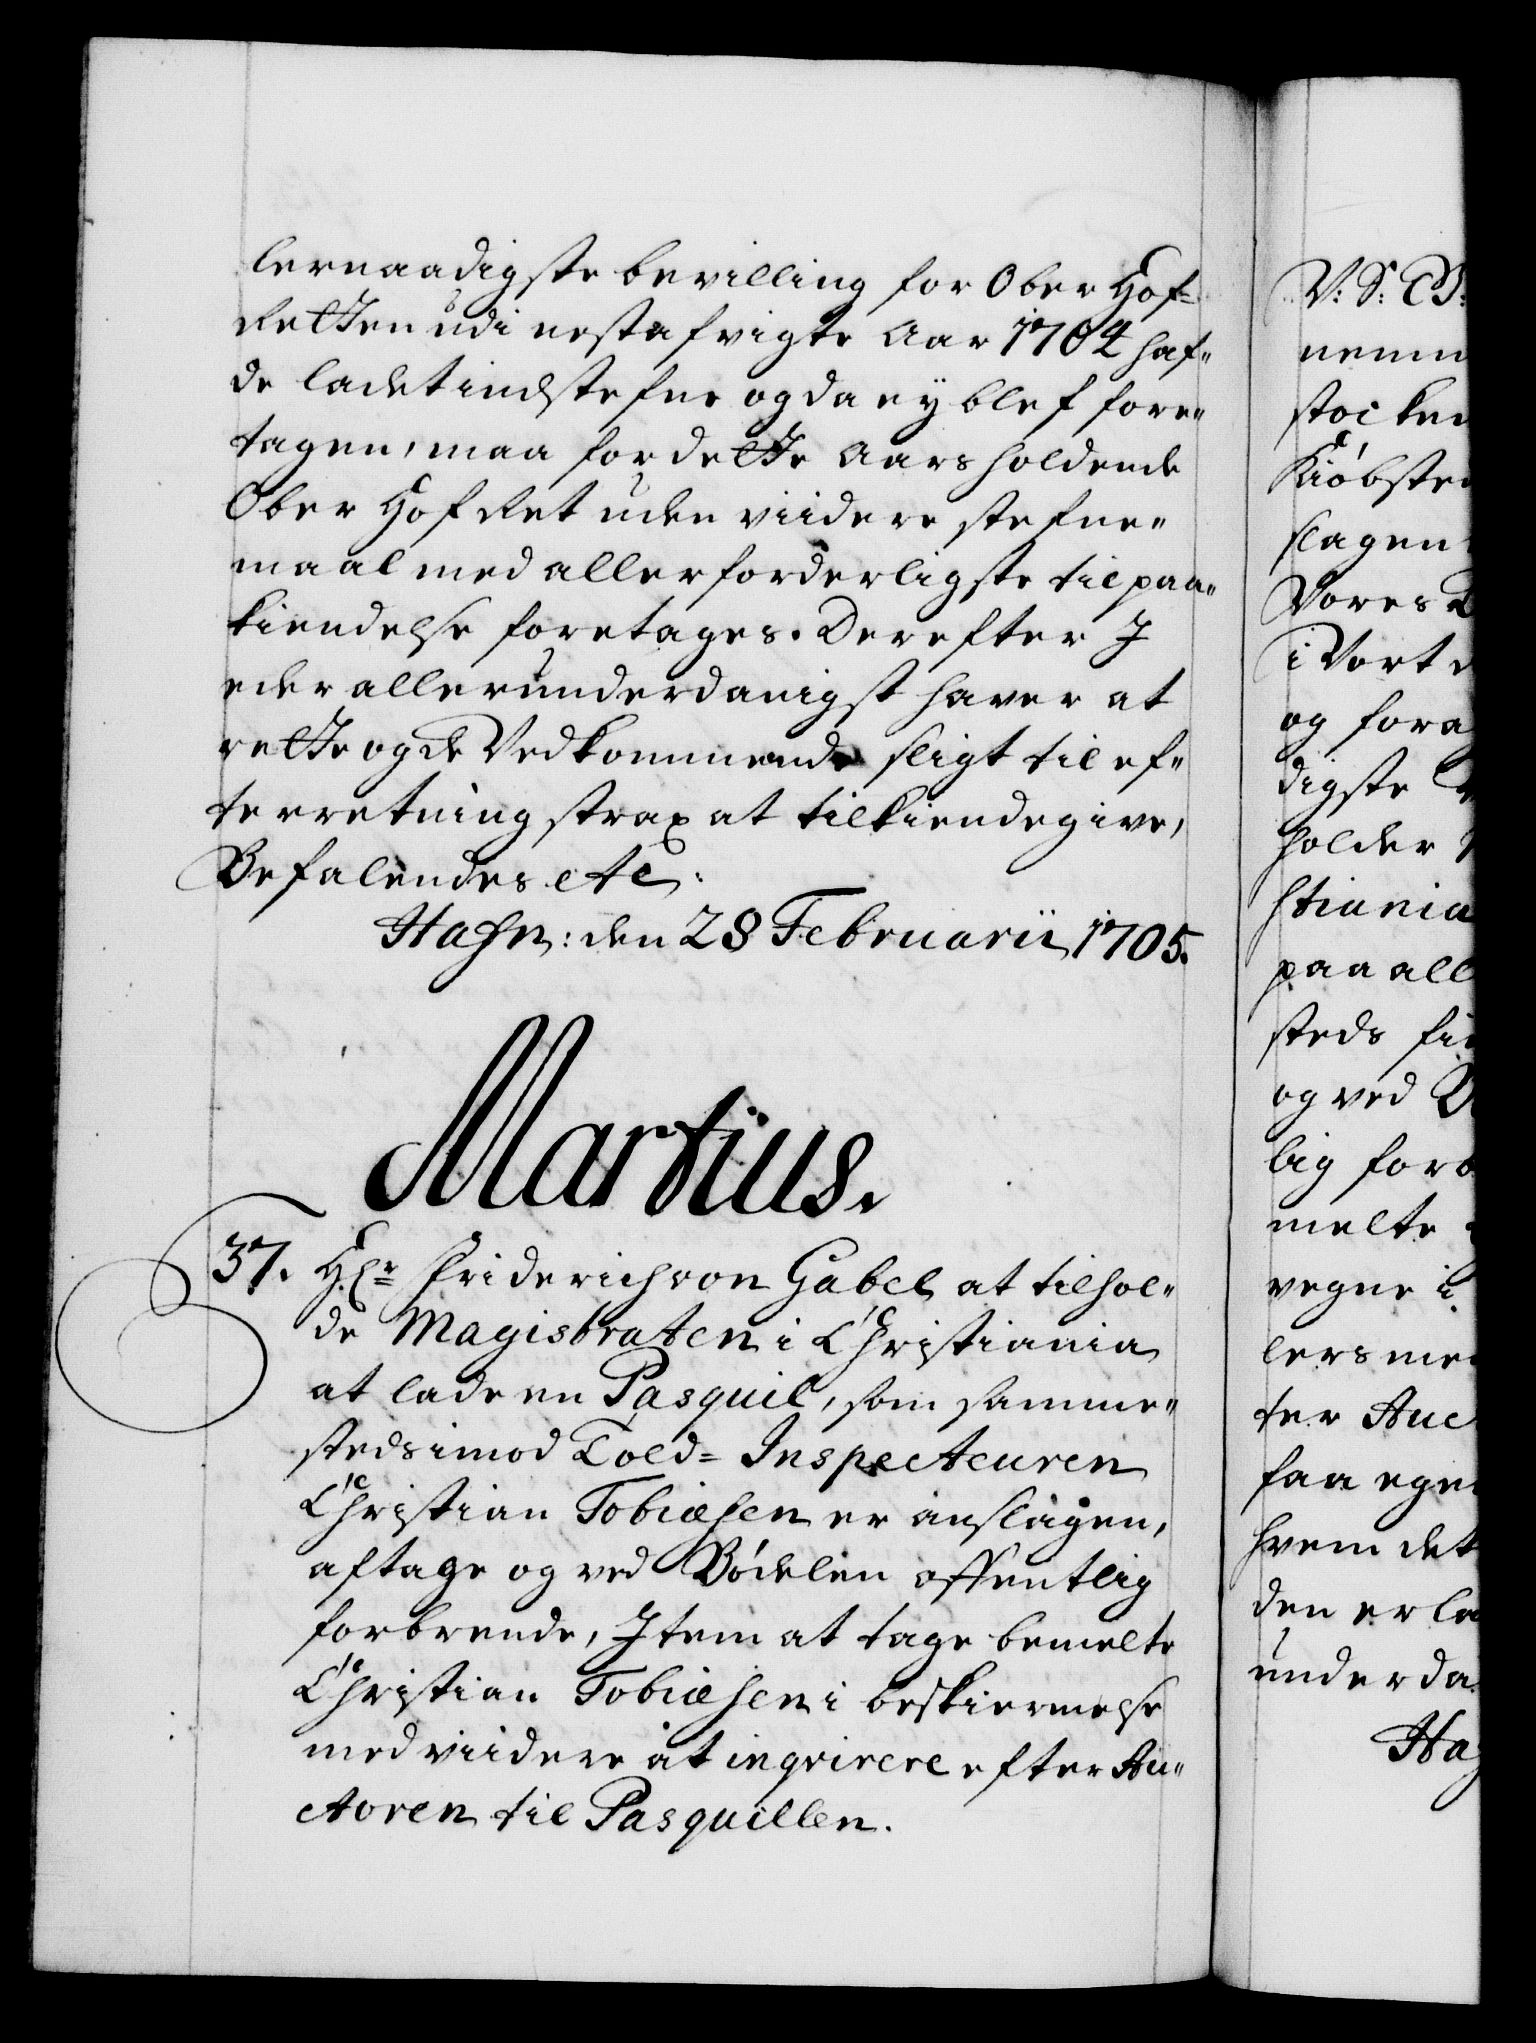 lernaadigste bevilling for Ober Hof=
Retten udi nestafvigte Aar 1704 haf„
de ladet indstefne og da ey blef fore„
tagen, maa for dette Aars holdende
Ober Hof Ret uden viidere stefne„
maal med allerforderligste til paa„
kiendelse foretages. Derefter I
eder allerunderdanigst haver at
rette og de Vedkommende sligt til ef„
terretning strax at tilkiendegive,
Befalendes etc:
Hafn: den 28 Februarii 1705.
Martius.
37. H.r Friderich von Gabel at tilhol„
de Magistraten i Christiania
at lade en Pasquil, som samme„
steds imod Told= Inspecteuren
Christian Tobiæsen er anslagen,
aftage og ved Bödelen offentlig
forbrende, Item at tage bemelte
Christian Tobiæsen i beskiermelse
med viidere at inqvirere efter Au„
ctoren til Pasquillen.
V: S: G:
nemm
stocken
Kiöbsted
slagen
Vores
i Vort
og fora
digste
holder
stiania
paa all
steds
og ved
lig forb
melte
vegne i
lers med
ter Auc
faa egen
hvem det
den er la
underda
Haf